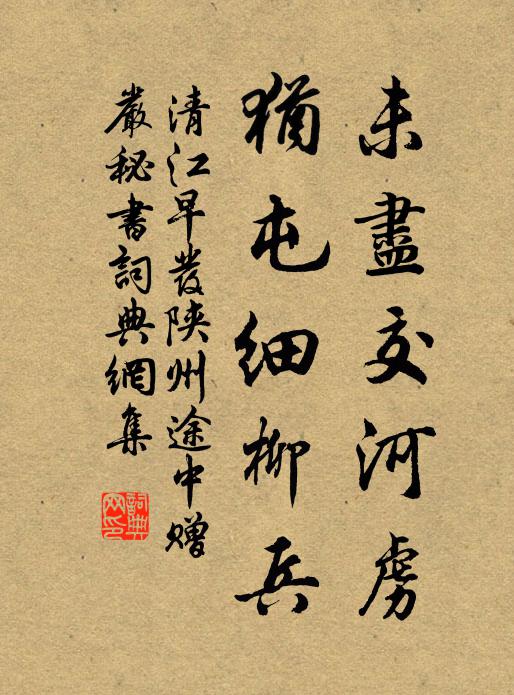 未盡交河虜
猶屯細柳兵
清江早發陝州途中贈
嚴秘書詞典網集
詞典網印